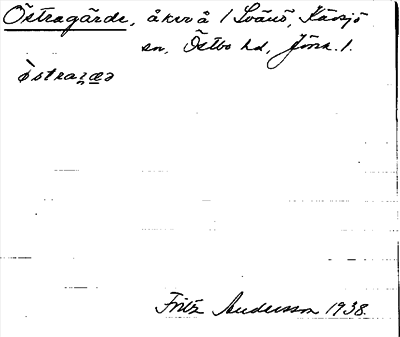 Östragärde, åker å 1 Svänö, Kävsjö
sn, Östbo hd, Jönk. l.
östraʐæə
Fritz Andersson 1938.